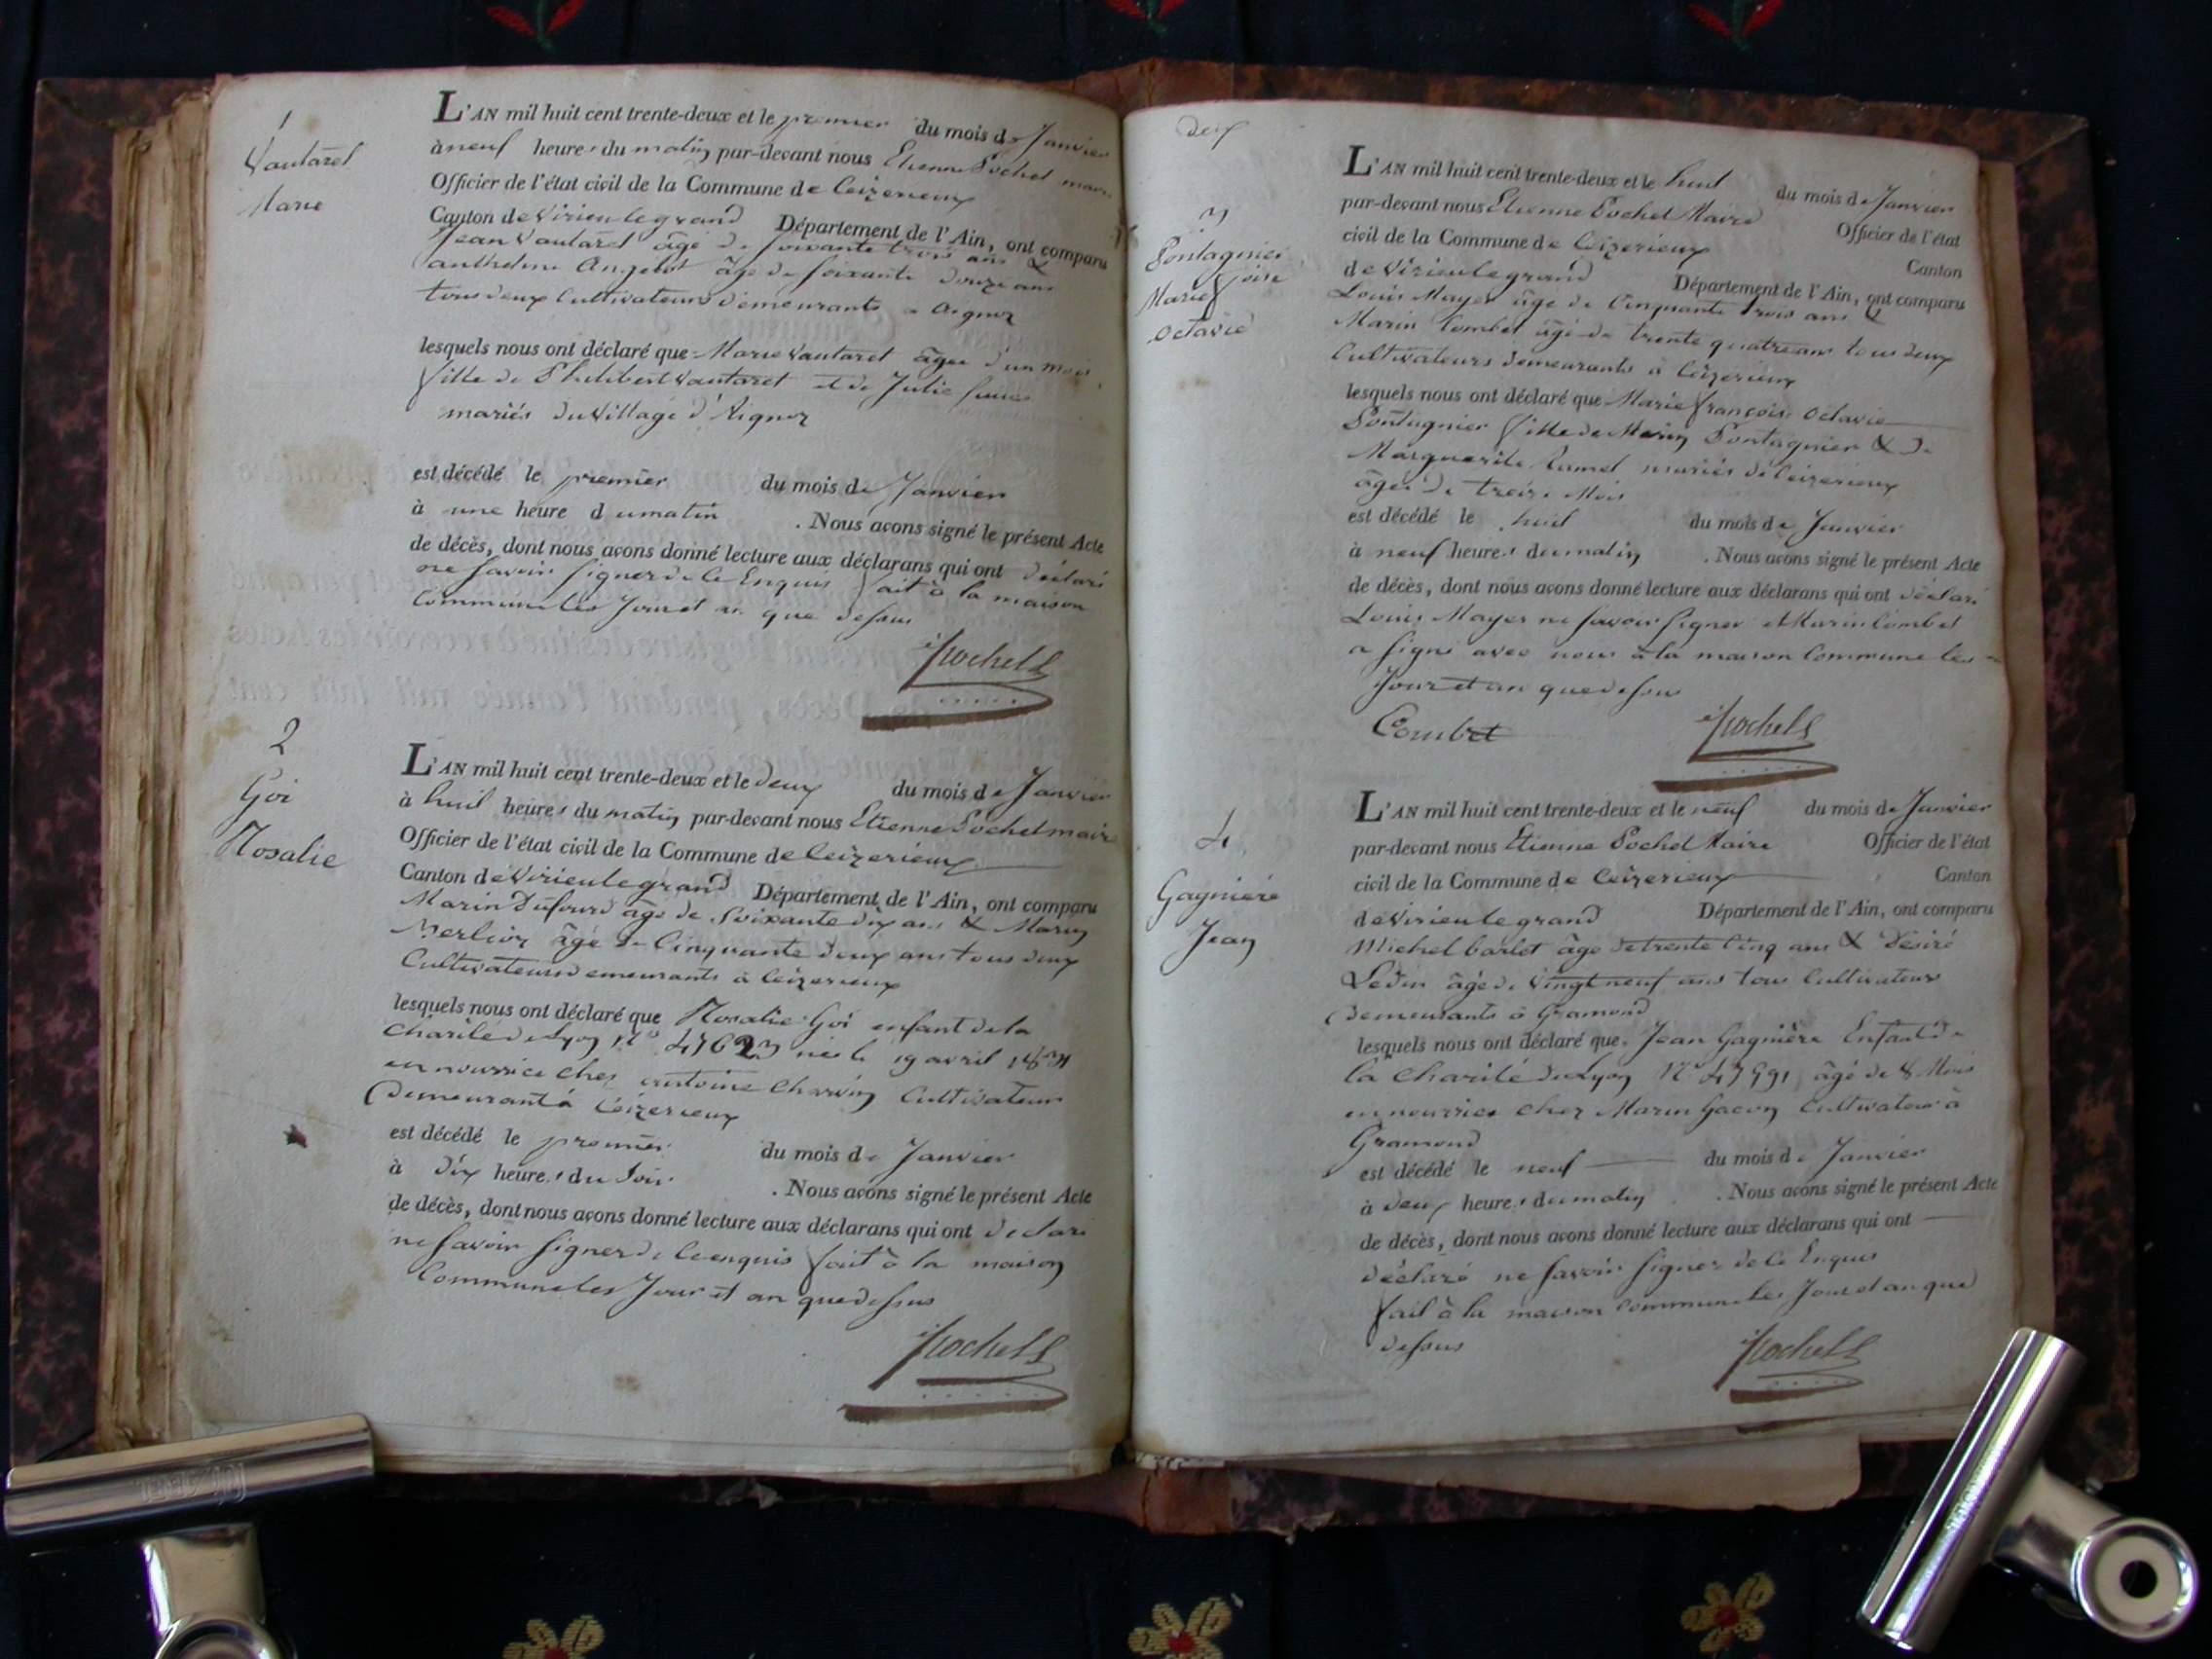 1
Vautaret
Marie
L'AN mil huit cent trente-deux et le premier du mois de Janvier
à neuf heures du matin par-devant nous Etienne Pochet maire
Officier de l'état civil de la Commune de Ceizerieux
Canton de Virieu le grand Département de l'Ain, ont comparu
Jean Vautaret âgé de soixante trois ans &
anthelme Angelot âgé de soixante douze ans
tous deux Cultivateurs demeurants a aignoz
lesquels nous ont déclaré que Marie Vautaret âgée d'un mois
fille de Philibert Vautaret et de Julie
mariés du Village d'Aignoz
est décédé le premier du mois de Janvier
à une heure du matin . Nous avons signé le présent Acte
de décès, dont nous avons donné lecture aux déclarans qui ont déclaré
ne savoir signer de ce Enquis fait à la maison
Commune les Jour et an que dessus
Pochet
2
Goi
Rosalie
L'AN mil huit cent trente-deux et le deux du mois de Janvier
à huit heures du matin par-devant nous Etienne Pochet maire
Officier de l'état civil de la Commune de Ceizerieux
Canton de Virieu le grand Département de l'Ain, ont comparu
Marin Dufourd âgé de Soixante dix ans & Marin
Merlioz âgé de Cinquante deux ans tous deux
Cultivateurs demeurants à Ceizerieux
lesquels nous ont déclaré que Rosalie Goi enfant de la
Charité de Lyon N° 47623 née le 19 avril 1831
en nourrice chez antoine Charvin Cultivateur
demeurant à Ceizerieux
est décédé le premier du mois de Janvier
à dix heures du Soir . Nous avons signé le présent Acte
de décès, dont nous avons donné lecture aux déclarans qui ont declaré
ne savoir signer de ce enquis fait à la maison
Commune les Jour et an que dessus
Pochet
deux
3
Pontagnier
Marie foise
octavie
L'AN mil huit cent trente-deux et le huit du mois de Janvier
par-devant nous Etienne Pochet Maire Officier de l'état
civil de la Commune de Ceizerieux Canton
de Virieu le grand Département de l'Ain, ont comparu
Louis Mayer âgé de Cinquante trois ans &
Marin Combet âgé de trente quatre ans tous deux
Cultivateurs demeurants à Ceizerieux
lesquels nous ont déclaré que Marie françoise octavie
Pontagnier fille de Marin Pontagnier & de
Marguerite Ramel mariés de Ceizerieux
âgée de treize Mois
est décédé le huit du mois de Janvier
à neuf heures du matin . Nous avons signé le présent Acte
de décès, dont nous avons donné lecture aux déclarans qui ont déclaré
Louis Mayer ne savoir signer et Marin Combet
a signé avec nous à la maison Commune les
Jour et an que dessus
Combet Pochet
4
Gagnière
Jean
L'AN mil huit cent trente-deux et le neuf du mois de Janvier
par-devant nous Etienne Pochet Maire Officier de l'état
civil de la Commune de Ceizerieux Canton
de Virieu le grand Département de l'Ain, ont comparu
Michel barlet âgé de trente Cinq ans & Désiré
Ledin âgé de Vingt neuf ans tous Cultivateurs
demeurants à Gramond
lesquels nous ont déclaré que Jean Gagnière Enfant de
la Charité de Lyon N° âgé de 8 Mois
en nourrice chez Marin Gacon Cultivateur à
Gramond
est décédé le neuf du mois de Janvier
à deux heures du matin . Nous avons signé le présent Acte
de décès, dont nous avons donné lecture aux déclarans qui ont
déclaré ne savoir signer de ce Enquis
fait à la maison Commune les Jour et an que
dessus
Pochet